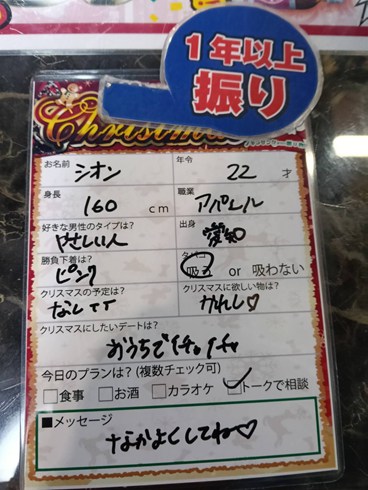 1年以上
振り
Christmas
お名前 シオン 年令 22 才
身長 160 cm 職業 アパレル
好きな男性のタイプは? やさしい人 出身 愛知
勝負下着は? ピンク タバコ 吸う or 吸わない
クリスマスの予定は? なしTT クリスマスに欲しい物は? かれし♡
クリスマスにしたいデートは?
おうちでイチャイチャ
今日のプランは?(複数チェック可)
□食事 □お酒 □カラオケ ☑トークで相談
■メッセージ
なかよくしてね♡